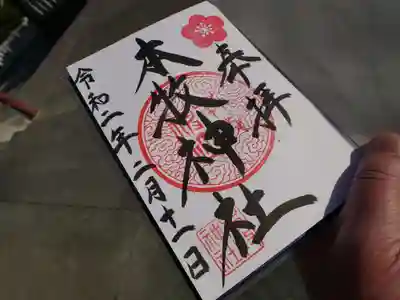 奉拝
本牧神社
令和二年二月十一日